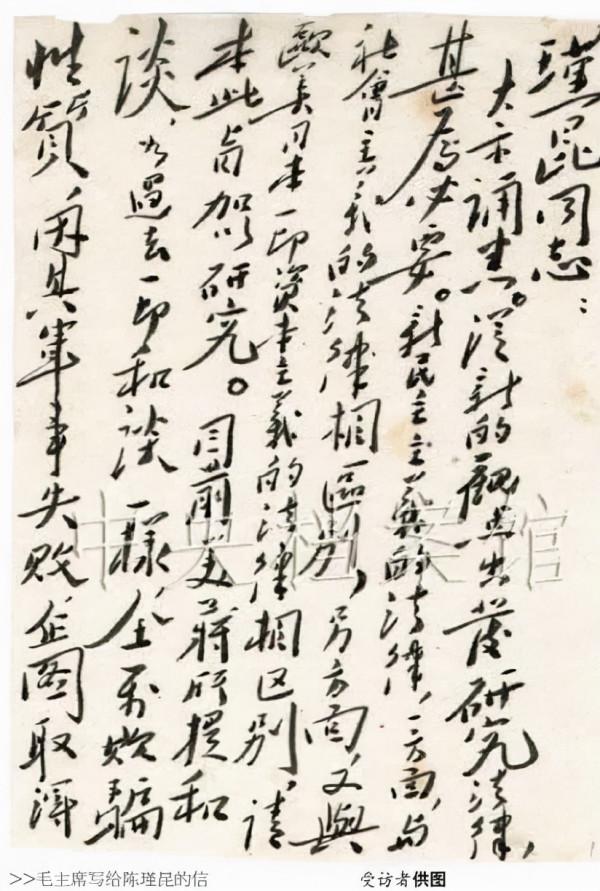 瑾昆同志：
大示诵悉。从新的观点出发研究法律，
甚为必要。新民主主义的法律，一方面，与
社會主义的法律相區别，另方面，又與
歐美日本一切资本主义的法律相区别，请
本此旨加以研究。目前美蒋所提和
谈，如过去一切和谈一様，全系欺骗
性質，因其軍事失败，企图取得
中央档案馆
>>毛主席写给陈瑾昆的信
受访者供图